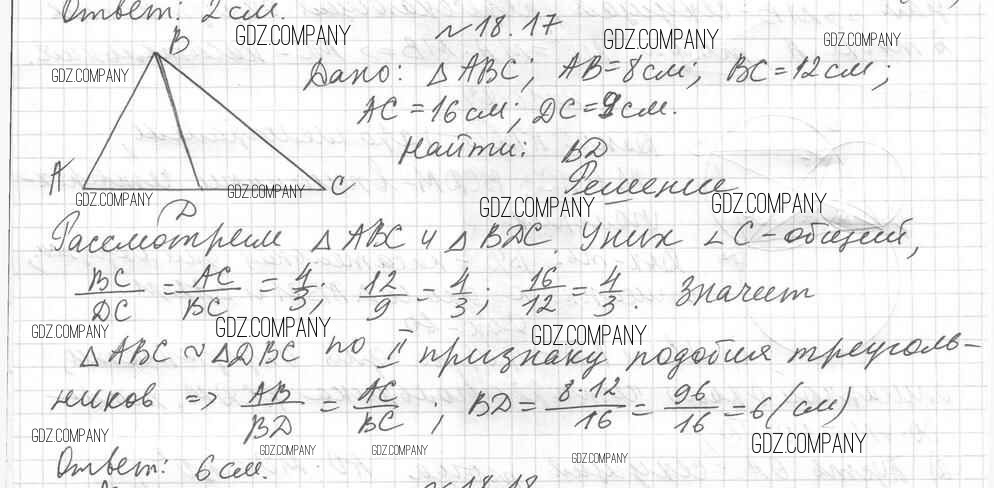 Ответ: 2 см.
N 18.17
GDZ.COMPANY GDZ.COMPANY GDZ.COMPANY
B
GDZ.COMPANY
Дано: △ABC; AB=8см; BC=12см;
AC=16см; DC=9см.
Найти: BD
A C
GDZ.COMPANY GDZ.COMPANY
Решение
GDZ.COMPANY GDZ.COMPANY
D
Рассмотрим △ABC и △BDC. У них ∠C-общий,
BC/DC = AC/BC = 4/3; 12/9 = 4/3; 16/12 = 4/3. Значит
GDZ.COMPANY GDZ.COMPANY GDZ.COMPANY
△ABC ~ △DBC по II признаку подобия треуголь-
ников => AB/BD = AC/BC; BD = 8·12/16 = 96/16 = 6 (см)
GDZ.COMPANY GDZ.COMPANY GDZ.COMPANY GDZ.COMPANY GDZ.COMPANY
Ответ: 6 см.
N 18.18